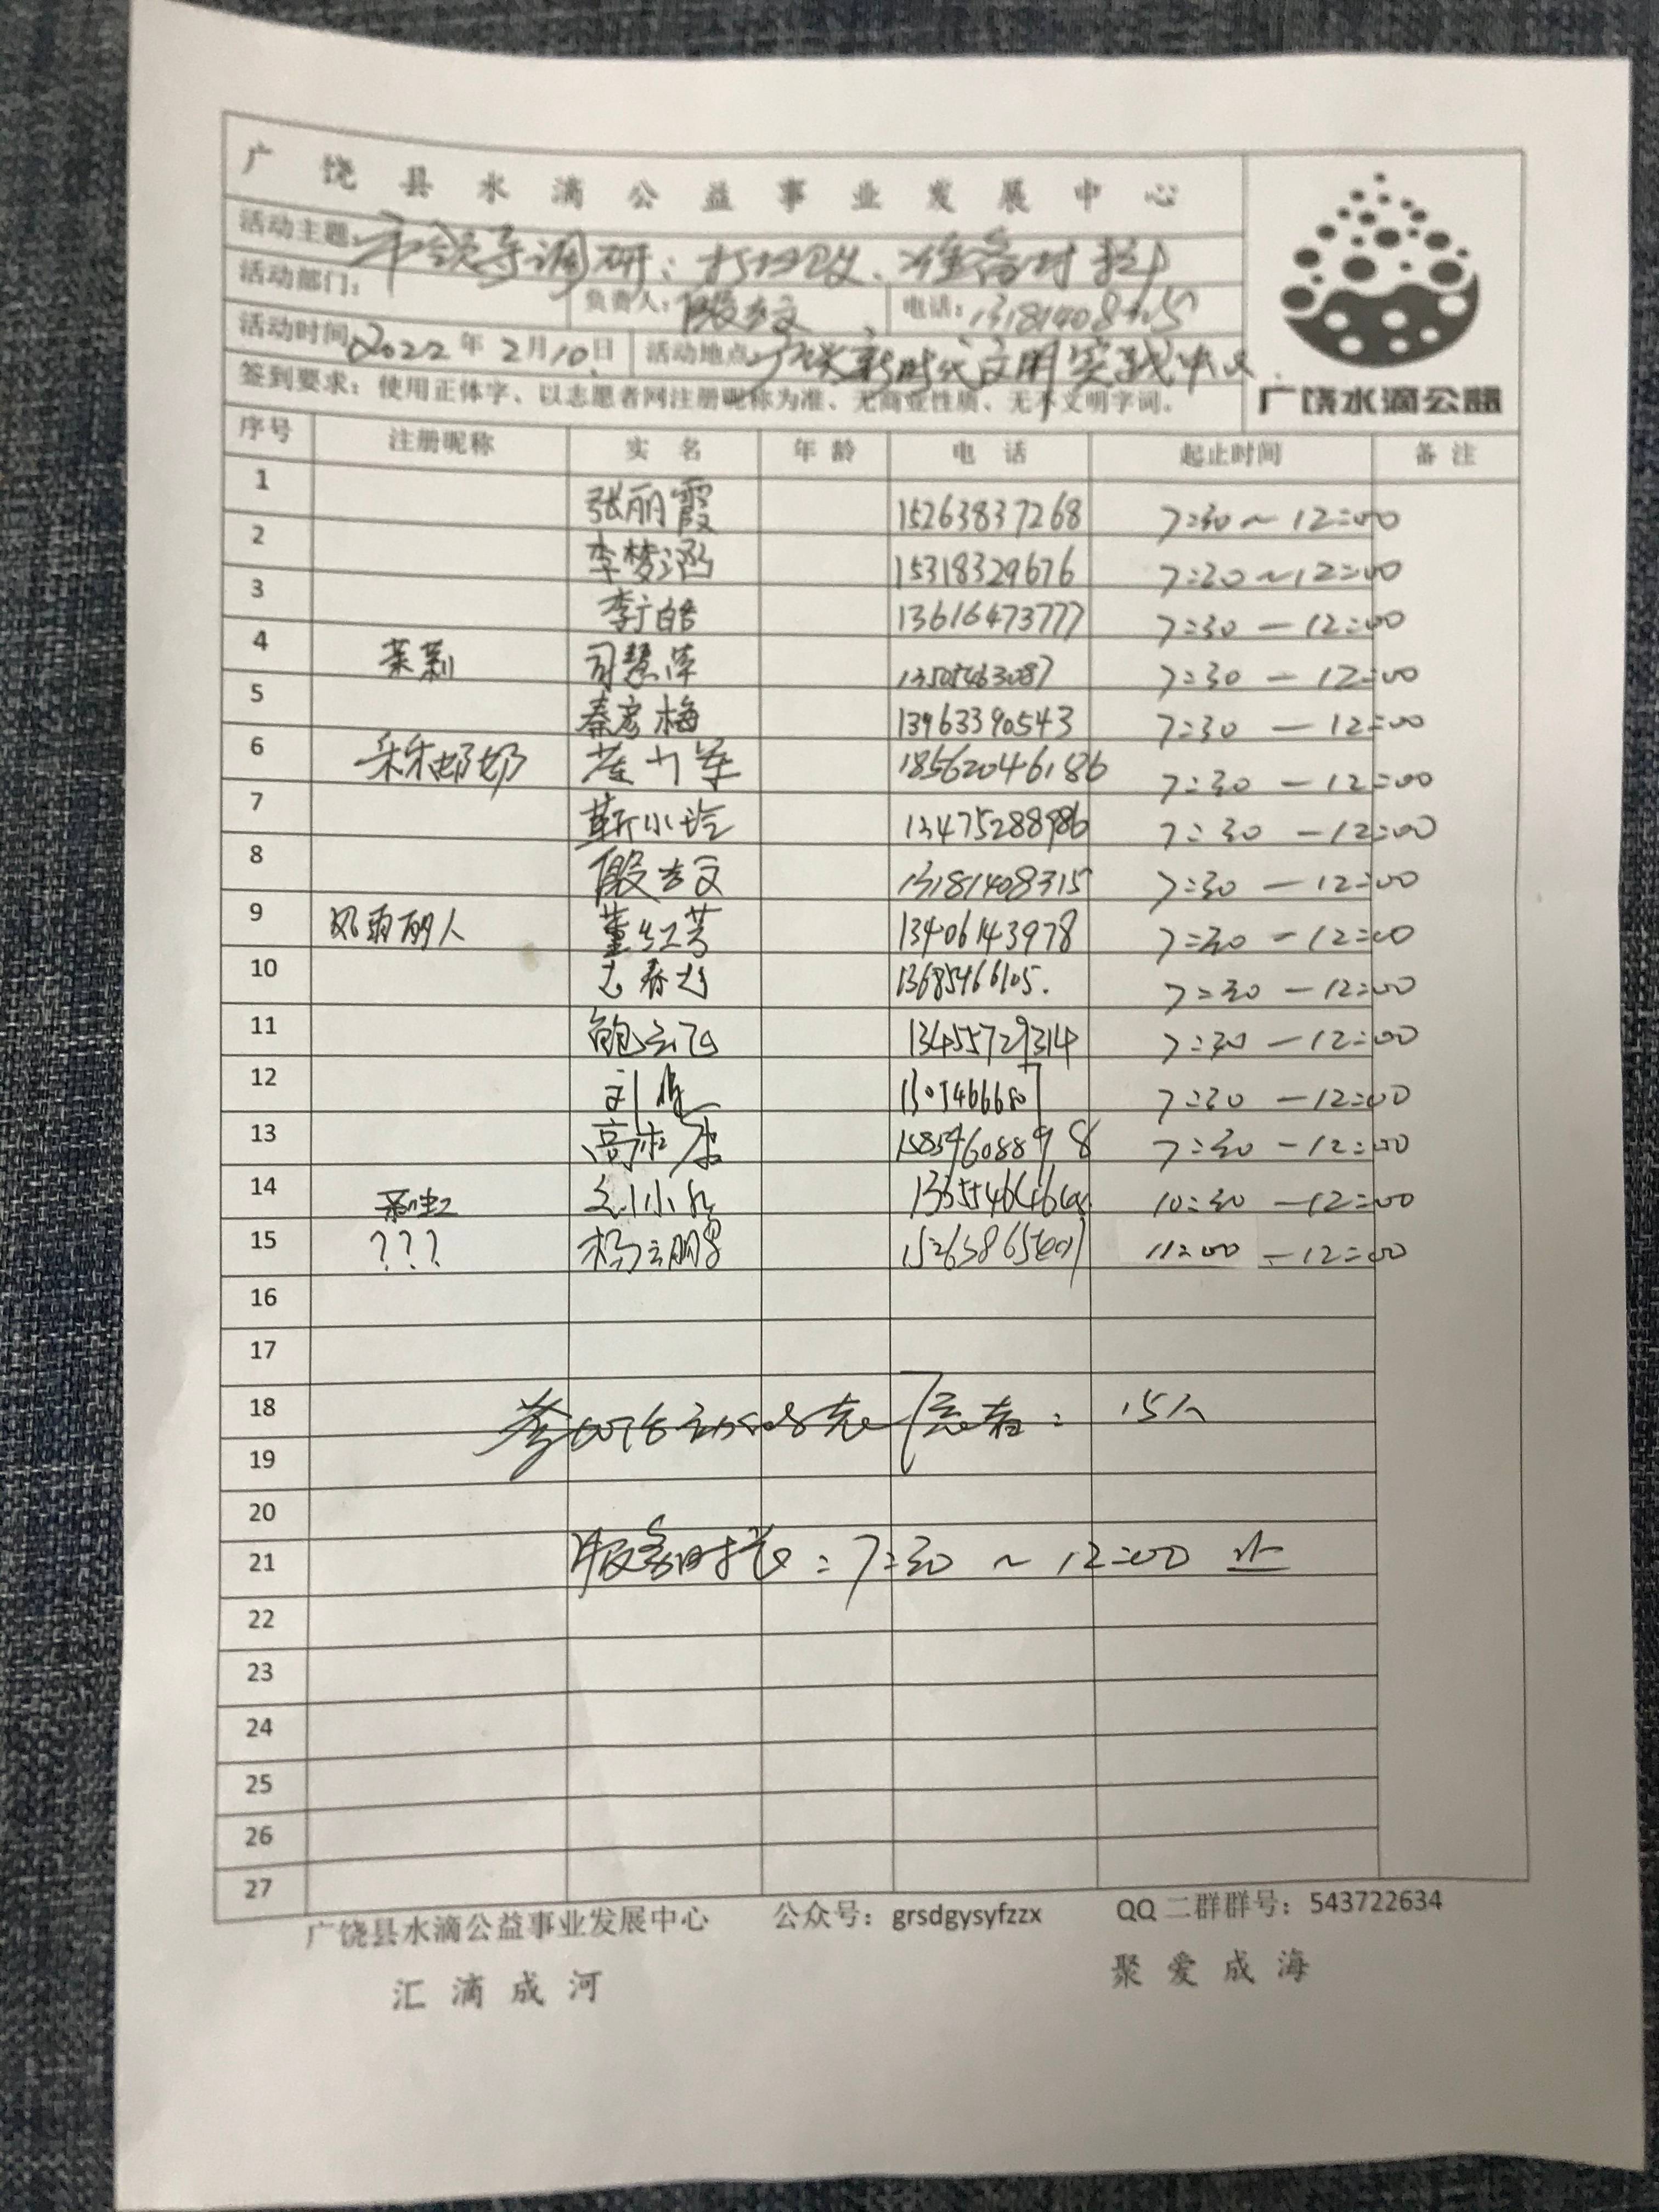 广饶县水滴公益事业发展中心
活动主题：市领导调研：打扫卫生、准备材料
活动部门： 负责人：殷吉文 电话：13181408315
活动时间 2022年2月10日 活动地点 新时代文明实践中心
签到要求：使用正体字、以志愿者网注册昵称为准、无商业性质、无不文明字词。
广饶水滴公益
序号 注册昵称 实名 年龄 电话 起止时间 备注
1 张丽霞 15263837268 7:30~12:00
2 李梦涵 15318329676 7:30~12:00
3 李广皓 13616473777 7:30—12:00
4 茉莉 司慧萍 13505463087 7:30—12:00
5 秦彦梅 13963390543 7:30—12:00
6 奶奶 18562046186 7:30—12:00
7 靳小玲 13475288986 7:30—12:00
8 殷吉文 13181408315 7:30—12:00
9 风雨丽人 董红芳 13406143978 7:30—12:00
10 13685466105. 7:30—12:00
11 鲍云飞 13455729314 7:30—12:00
12 刘 7:30—12:00
13 高 15854608898 7:30—12:00
14 刘小红 10:30—12:00
15 ??? 杨云鹏 11:00—12:00
16
17
18 参加活动的志愿者：15人
19
20
21 服务时长：7:30~12:00止
22
23
24
25
26
27
广饶县水滴公益事业发展中心 公众号：grsdgysyfzzx QQ二群群号：543722634
汇滴成河 聚爱成海